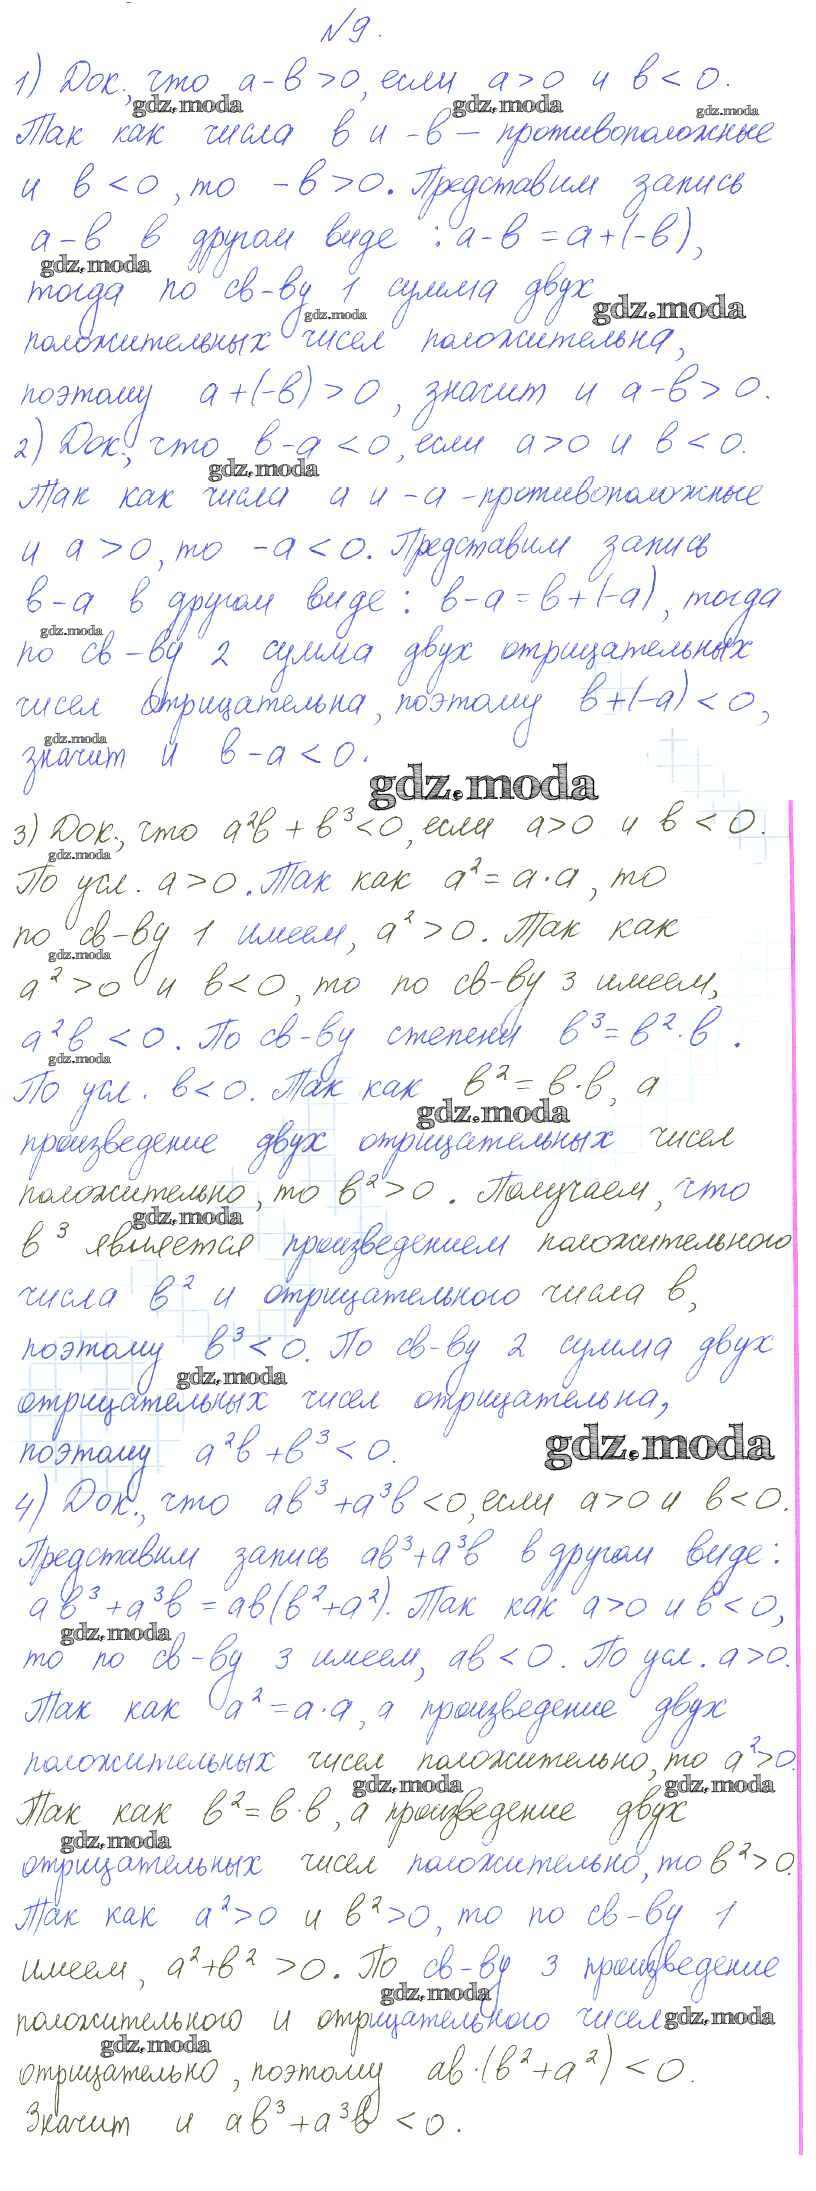 №9.
1) Док., что a-b>0, если a>0 и b<0.
gdz.moda gdz.moda gdz.moda
Так как числа b и -b – противоположные
и b<0, то -b>0. Представим запись
a-b в другом виде: a-b=a+(-b),
gdz.moda
тогда по св-ву 1 сумма двух
gdz.moda gdz.moda
положительных чисел положительна,
поэтому a+(-b)>0, значит и a-b>0.
2) Док., что b-a<0, если a>0 и b<0.
gdz.moda
Так как числа a и -a - противоположные
и a>0, то -a<0. Представим запись
b-a в другом виде: b-a=b+(-a), тогда
gdz.moda
по св-ву 2 сумма двух отрицательных
чисел отрицательна, поэтому b+(-a)<0,
gdz.moda
значит и b-a<0.
gdz.moda
3) Док., что a²b+b³<0, если a>0 и b<0.
gdz.moda
По усл. a>0. Так как a²=a·a, то
по св-ву 1 имеем, a²>0. Так как
gdz.moda
a²>0 и b<0, то по св-ву 3 имеем,
a²b<0. По св-ву степени b³=b²·b.
gdz.moda
По усл. b<0. Так как b²=b·b, а
gdz.moda
произведение двух отрицательных чисел
положительно, то b²>0. Получаем, что
gdz.moda
b³ является произведением положительного
числа b² и отрицательного числа b,
поэтому b³<0. По св-ву 2 сумма двух
gdz.moda
отрицательных чисел отрицательна,
поэтому a²b+b³<0.
gdz.moda
4) Док., что ab³+a³b<0, если a>0 и b<0.
Представим запись ab³+a³b в другом виде:
ab³+a³b=ab(b²+a²). Так как a>0 и b<0,
gdz.moda
то по св-ву 3 имеем, ab<0. По усл. a>0.
Так как a²=a·a, а произведение двух
положительных чисел положительно, то a²>0.
gdz.moda gdz.moda
Так как b²=b·b, а произведение двух
gdz.moda
отрицательных чисел положительно, то b²>0.
Так как a²>0 и b²>0, то по св-ву 1
имеем, a²+b²>0. По св-ву 3 произведение
gdz.moda
положительного и отрицательного чисел
gdz.moda gdz.moda
отрицательно, поэтому ab·(b²+a²)<0.
Значит и ab³+a³b<0.